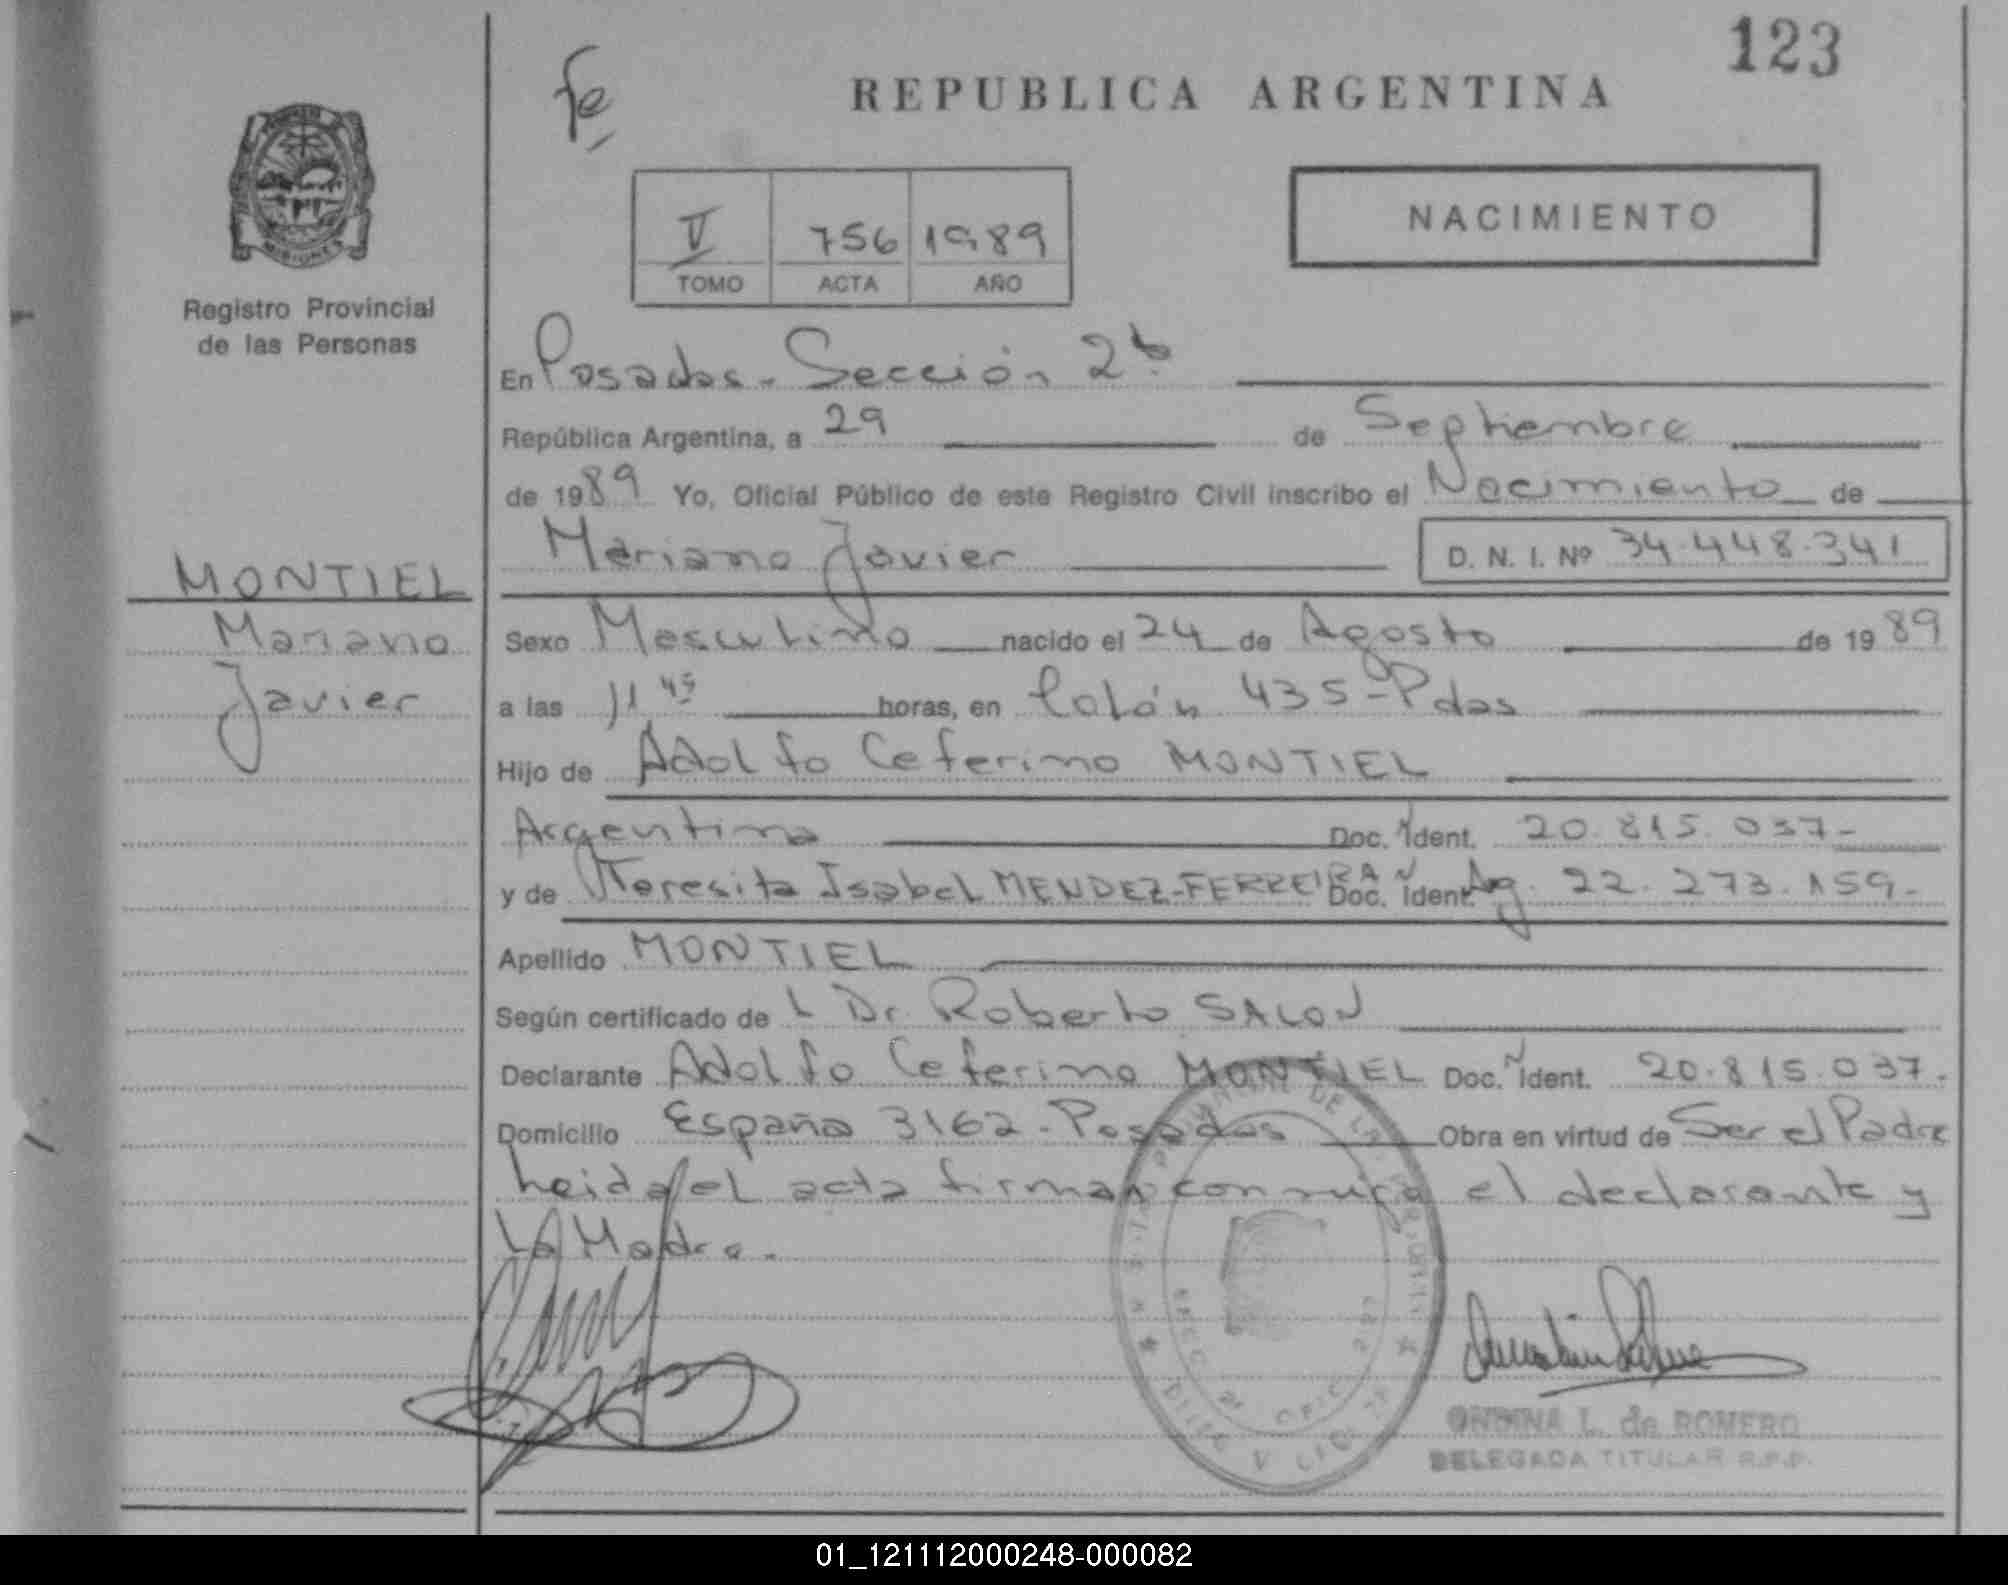 123
fe
REPUBLICA ARGENTINA
MISIONES
Registro Provincial
de las Personas
V 756 1989
TOMO ACTA AÑO
NACIMIENTO
En Posadas - Sección 2ª
República Argentina, a 29 de Septiembre
de 1989 Yo, Oficial Público de este Registro Civil inscribo el Nacimiento de
Mariano Javier D. N. I. Nº 34.448.341
MONTIEL
Mariano
Javier
Sexo Masculino nacido el 24 de Agosto de 1989
a las 11 45 horas, en Colón 435 - Pdas
Hijo de Adolfo Ceferino MONTIEL
Argentina Doc. Ident. 20.815.037-
y de Teresita Isabel MENDEZ-FERREIRA Doc. Ident. Arg. 22.273.159-
Apellido MONTIEL
Según certificado de L Dr. Roberto SALOJ
Declarante Adolfo Ceferino MONTIEL Doc. Ident. 20.815.037.
Domicilio España 3162 - Posadas Obra en virtud de Ser el Padre
Leida el acta firman conmigo el declarante y
La Madre.
ONDINA L. de ROMERO
DELEGADA TITULAR R.P.P.
01_121112000248-000082